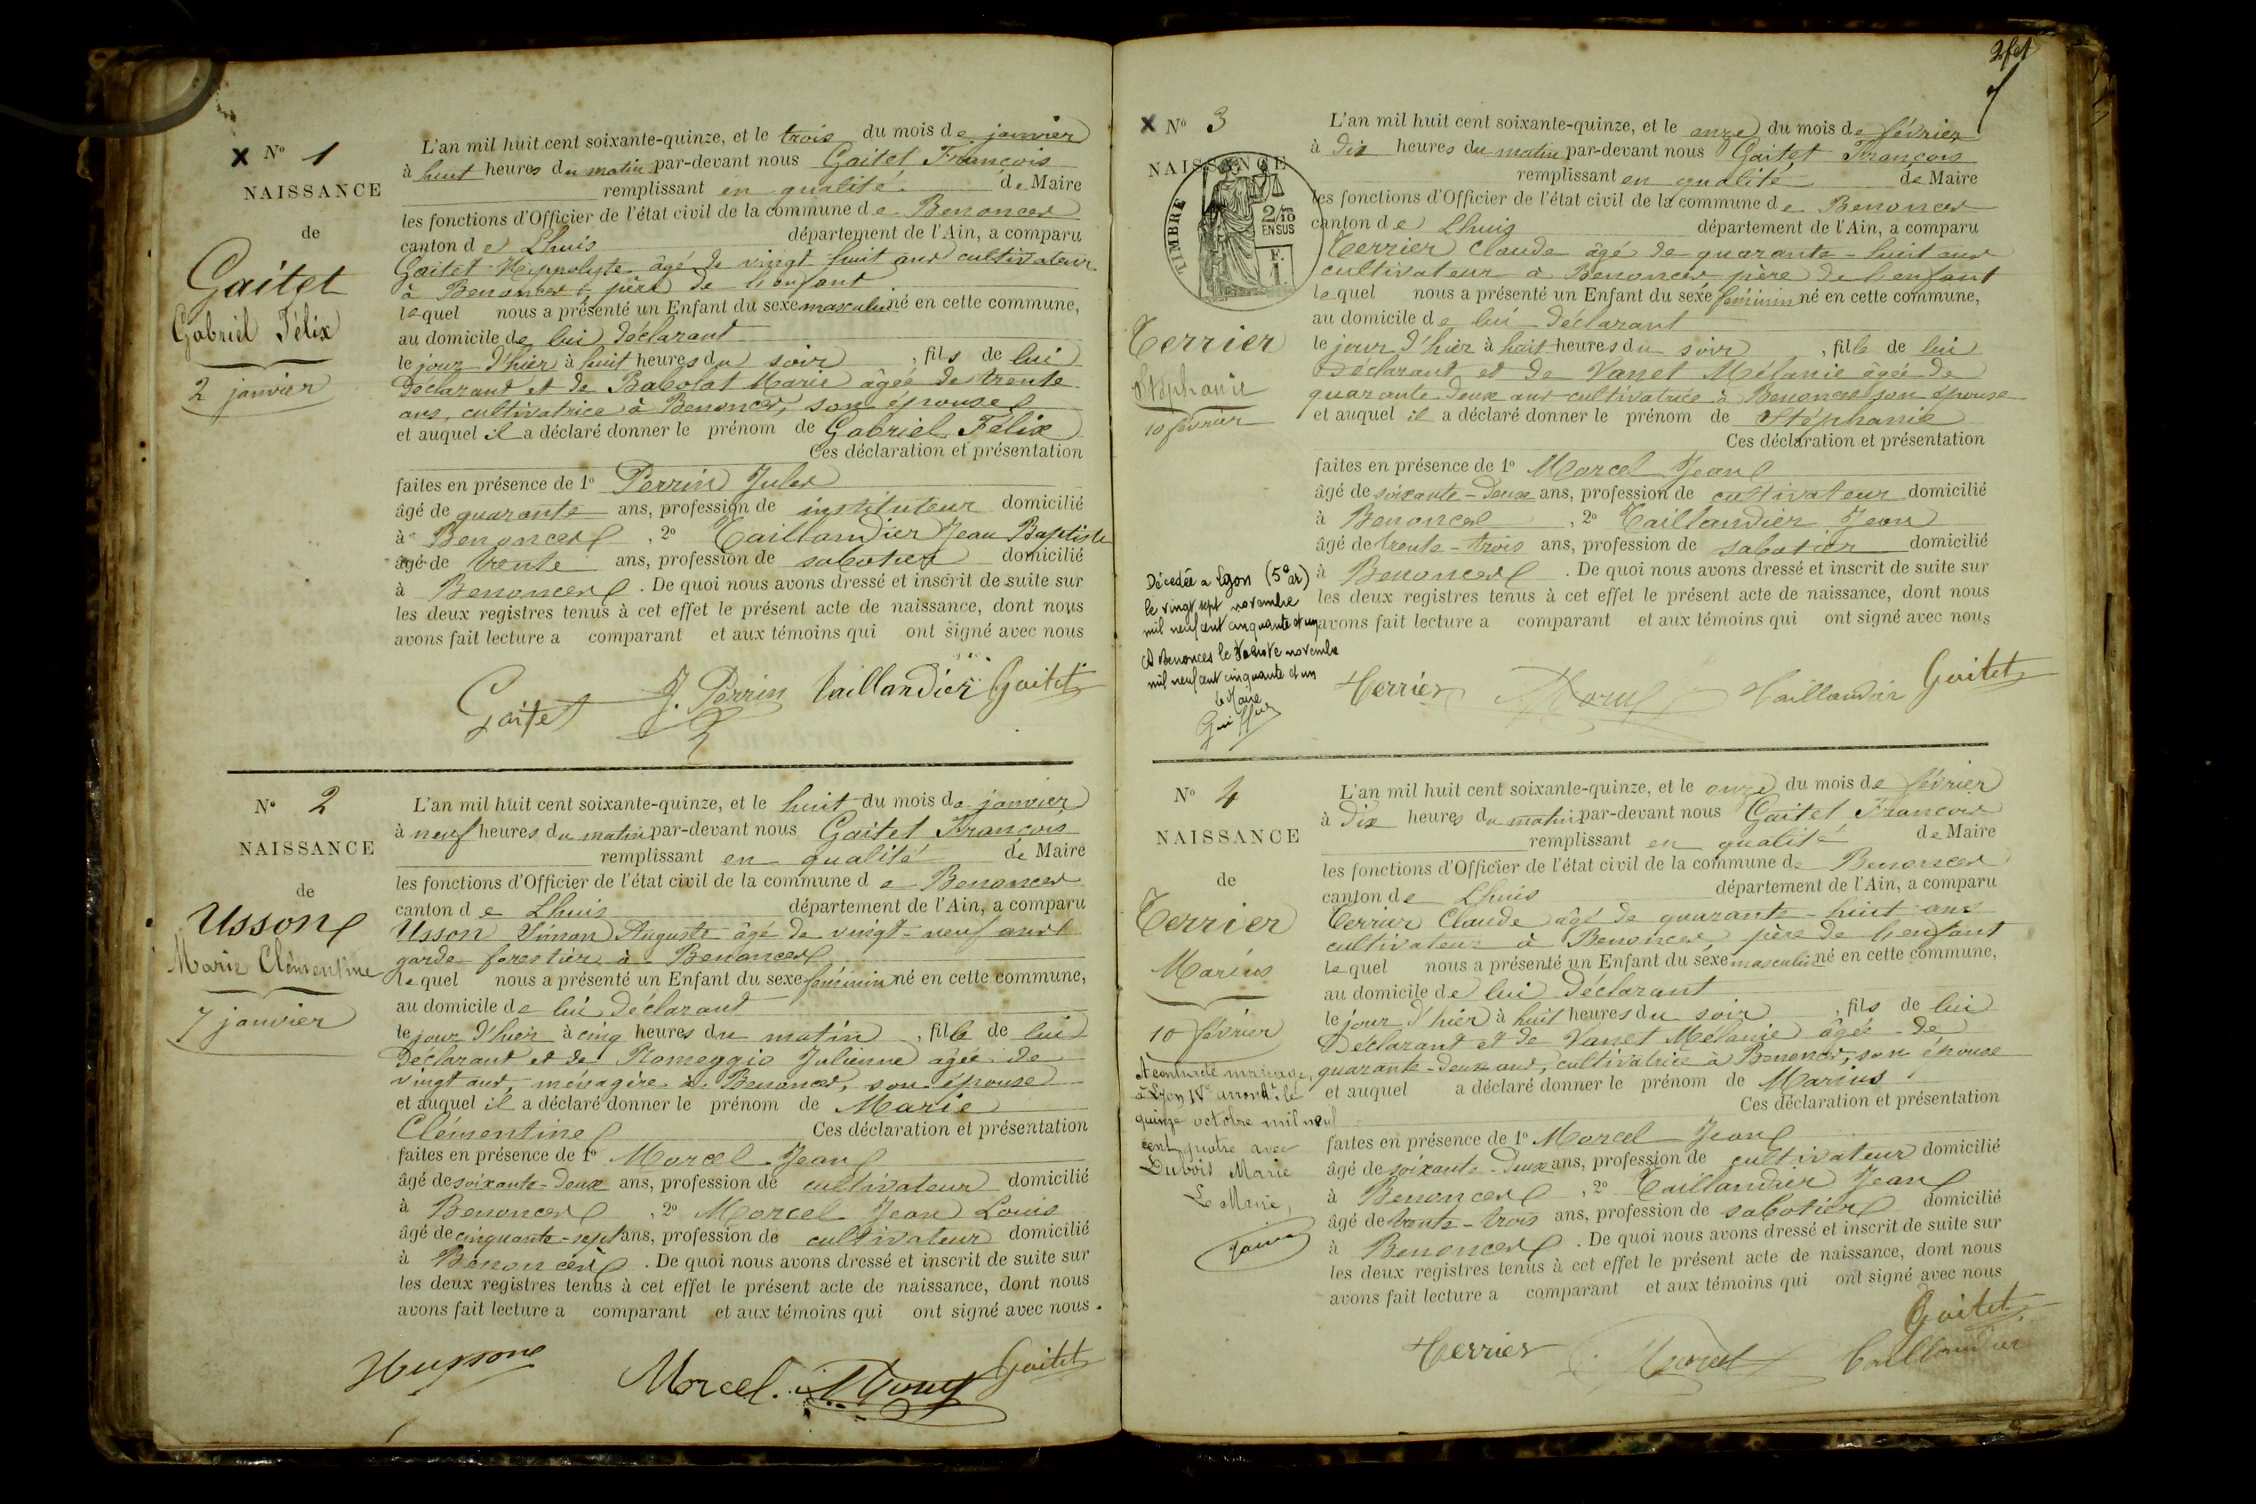 x Nº 1
NAISSANCE
de
Gaitet
Gabriel Félix
2 janvier
L'an mil huit cent soixante-quinze, et le trois du mois de janvier
à huit heures du matin par-devant nous Gaitet François
remplissant en qualité de Maire
les fonctions d'Officier de l'état civil de la commune de Benonces
canton de Lhuis département de l'Ain, a comparu
Gaitet Hippolyte âgé de vingt huit ans cultivateur
à Benonces père de l'enfant
lequel nous a présenté un Enfant du sexe masculin né en cette commune,
au domicile de lui déclarant
le jour d'hier à huit heures du soir, fils de lui
déclarant et de Babolat Marie âgée de trente
ans, cultivatrice à Benonces, son épouse
et auquel il a déclaré donner le prénom de Gabriel Félix
Ces déclaration et présentation
faites en présence de 1º Perrin Jules
âgé de quarante ans, profession de instituteur domicilié
à Benonces, 2º Taillandier Jean Baptiste
âgé de trente ans, profession de sabotier domicilié
à Benonces. De quoi nous avons dressé et inscrit de suite sur
les deux registres tenus à cet effet le présent acte de naissance, dont nous
avons fait lecture a comparant et aux témoins qui ont signé avec nous
Gaitet J. Perrin Taillandier Gaitet
Nº 2
NAISSANCE
de
Usson
Marie Clémentine
7 janvier
L'an mil huit cent soixante-quinze, et le huit du mois de janvier
à neuf heures du matin par-devant nous Gaitet François
remplissant en qualité de Maire
les fonctions d'Officier de l'état civil de la commune de Benonces
canton de Lhuis département de l'Ain, a comparu
Usson Simon Auguste âgé de vingt-neuf ans
garde forestier à Benonces
lequel nous a présenté un Enfant du sexe féminin né en cette commune,
au domicile de lui déclarant
le jour d'hier à cinq heures du matin, fille de lui
déclarant et de Romeggio Julienne agée de
vingt ans, ménagère à Benonces, son épouse
et auquel il a déclaré donner le prénom de Marie
Clémentine Ces déclaration et présentation
faites en présence de 1º Marcel Jean
âgé de soixante-deux ans, profession de cultivateur domicilié
à Benonces, 2º Marcel Jean Louis
âgé de cinquante-sept ans, profession de cultivateur domicilié
à Benonces. De quoi nous avons dressé et inscrit de suite sur
les deux registres tenus à cet effet le présent acte de naissance, dont nous
avons fait lecture a comparant et aux témoins qui ont signé avec nous.
Hussone Marcel Gaitet
x Nº 3
NAISSANCE
TIMBRE
2/10
EN SUS
F.
1
Terrier
Stéphanie
10 février
L'an mil huit cent soixante-quinze, et le onze du mois de février
à dix heures du matin par-devant nous Gaitet François
remplissant en qualité de Maire
les fonctions d'Officier de l'état civil de la commune de Benonces
canton de Lhuis département de l'Ain, a comparu
Terrier Claude âgé de quarante-huit ans
cultivateur à Benonces père de l'enfant
lequel nous a présenté un Enfant du sexe féminin né en cette commune,
au domicile de lui déclarant
le jour d'hier à huit heures du soir, fille de lui
déclarant et de Vanet Mélanie agée de
quarante-deux ans cultivatrice à Benonces son épouse
et auquel il a déclaré donner le prénom de Stéphanie
Ces déclaration et présentation
faites en présence de 1º Marcel Jean
âgé de soixante-deux ans, profession de cultivateur domicilié
à Benonces, 2º Taillandier Jean
âgé de trente-trois ans, profession de sabotier domicilié
à Benonces. De quoi nous avons dressé et inscrit de suite sur
les deux registres tenus à cet effet le présent acte de naissance, dont nous
avons fait lecture a comparant et aux témoins qui ont signé avec nous
Décédée a Lyon (5º ar)
le vingt sept novembre
mil neuf cent cinquante et un
A Benonces le novembre
mil neuf cent cinquante et un
le Maire
Terrier Taillandier Gaitet
Nº 4
NAISSANCE
de
Terrier
Marius
10 février
L'an mil huit cent soixante-quinze, et le onze du mois de février
à dix heures du matin par-devant nous Gaitet François
remplissant en qualité de Maire
les fonctions d'Officier de l'état civil de la commune de Benonces
canton de Lhuis département de l'Ain, a comparu
Terrier Claude âgé de quarante-huit ans
cultivateur à Benonces père de l'enfant
lequel nous a présenté un Enfant du sexe masculin né en cette commune,
au domicile de lui déclarant
le jour d'hier à huit heures du soir, fils de lui
déclarant et de Vanet Mélanie âgée de
quarante-deux ans, cultivatrice à Benonces, son épouse
et auquel a déclaré donner le prénom de Marius
Ces déclaration et présentation
faites en présence de 1º Marcel Jean
âgé de soixante-deux ans, profession de cultivateur domicilié
à Benonces, 2º Taillandier Jean
âgé de trente-trois ans, profession de sabotier domicilié
à Benonces. De quoi nous avons dressé et inscrit de suite sur
les deux registres tenus à cet effet le présent acte de naissance, dont nous
avons fait lecture a comparant et aux témoins qui ont signé avec nous
A contracté mariage
à Lyon IVe arrondt le
quinze octobre mil neuf
cent quatre avec
Dubois Marie
Le Maire,
Terrier Marcel Gaitet
Taillandier